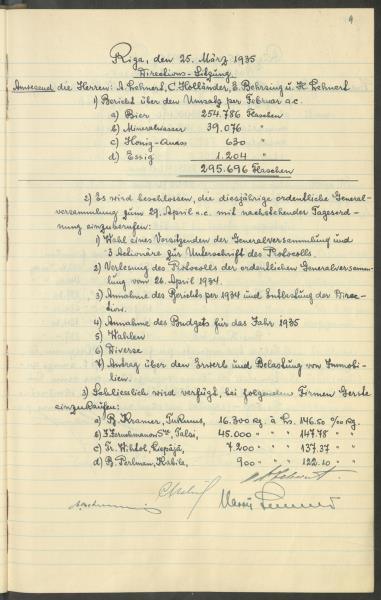 9
Riga, den 25. März 1935
Directions-Sitzung
Anwesend die Herren: A. Lehnert, C. Holländer, E. Behrsing u. H. Lehnert
1) Bericht über den Umsatz per Februar a.c.
a) Bier 254.786 Flaschen
b) Mineralwasser 39.076 "
c) Honig-Quass 630 "
d) Essig 1.204 "
295.696 Flaschen
2) Es wird beschlossen, die diesjährige ordentliche General-
versammlung zum 29. April a.c. mit nachstehender Tagesord-
nung einzuberufen:
1) Wahl eines Vorsitzenden der Generalversammlung und
3 Actionäre zur Unterschrift des Protocolls.
2) Verlesung des Protocolls der ordentlichen Generalversamm-
lung vom 26. April 1934.
3) Annahme des Berichts per 1934 und Entlastung der Direc-
tion.
4) Annahme des Budgets für das Jahr 1935
5) Wahlen
6) Diverse
7) Antrag über den Erwerb und Belastung von Immobi-
lien.
3) Schliesslich wird verfügt, bei folgenden Firmen Gerste
einzukaufen:
a) B. Kramer, Tukums, 16.300 kg. à Ls. 146.50 %00 kg.
b) Talsi, 45.000 " " " 147.78 " "
c) Fr. Wihtol, Lepāja, 7.200 " " " 137.37 " "
d) B. Perlman, Kabile, 900 " " " 122.10 " "